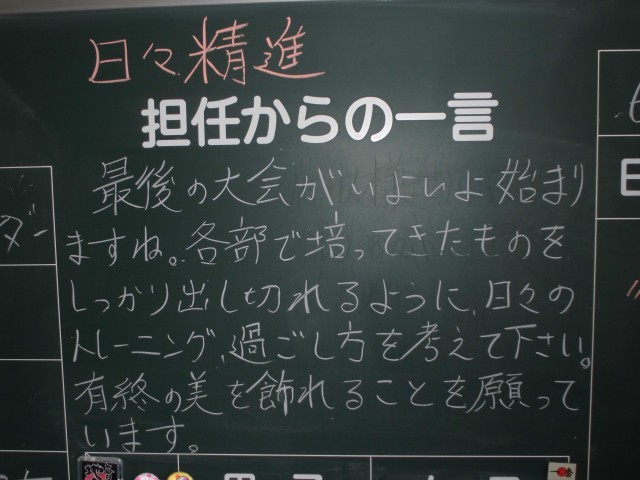 日々精進
担任からの一言
最後の大会がいよいよ始まり
ますね。各部で培ってきたものを
しっかり出し切れるように、日々の
トレーニング、過ごし方を考えて下さい。
有終の美を飾れることを願って
います。